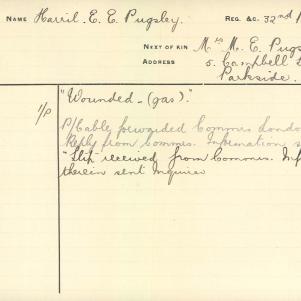 NAME Harril. E. E. Pugsley. REG. &C. 32nd
NEXT OF KIN Mrs M. E. Pugs
ADDRESS 5. Campbell
Parkside.
"Wounded - (gas)."
P/Cable forwarded Commrs London
Reply from Commrs. Information s
"Slip" received from Commrs. Inf
therein sent Inquirer